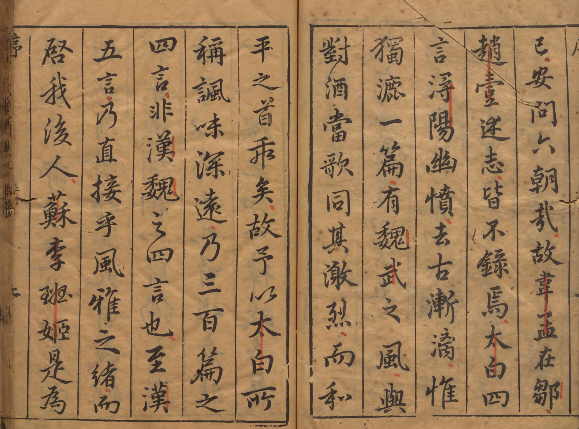 已安問六朝哉故韋孟在鄒
趙壹述志皆不錄焉太白四
言潯陽幽憤去古漸漓惟
獨漉一篇有魏武之風與
對酒當歌同其激烈而和
平之首乖矣故予以太白所
稱諷味深遠乃三百篇之
四言非漢魏之四言也至漢
五言乃直接乎風雅之緒而
啓我後人蘇李班姬是為
序